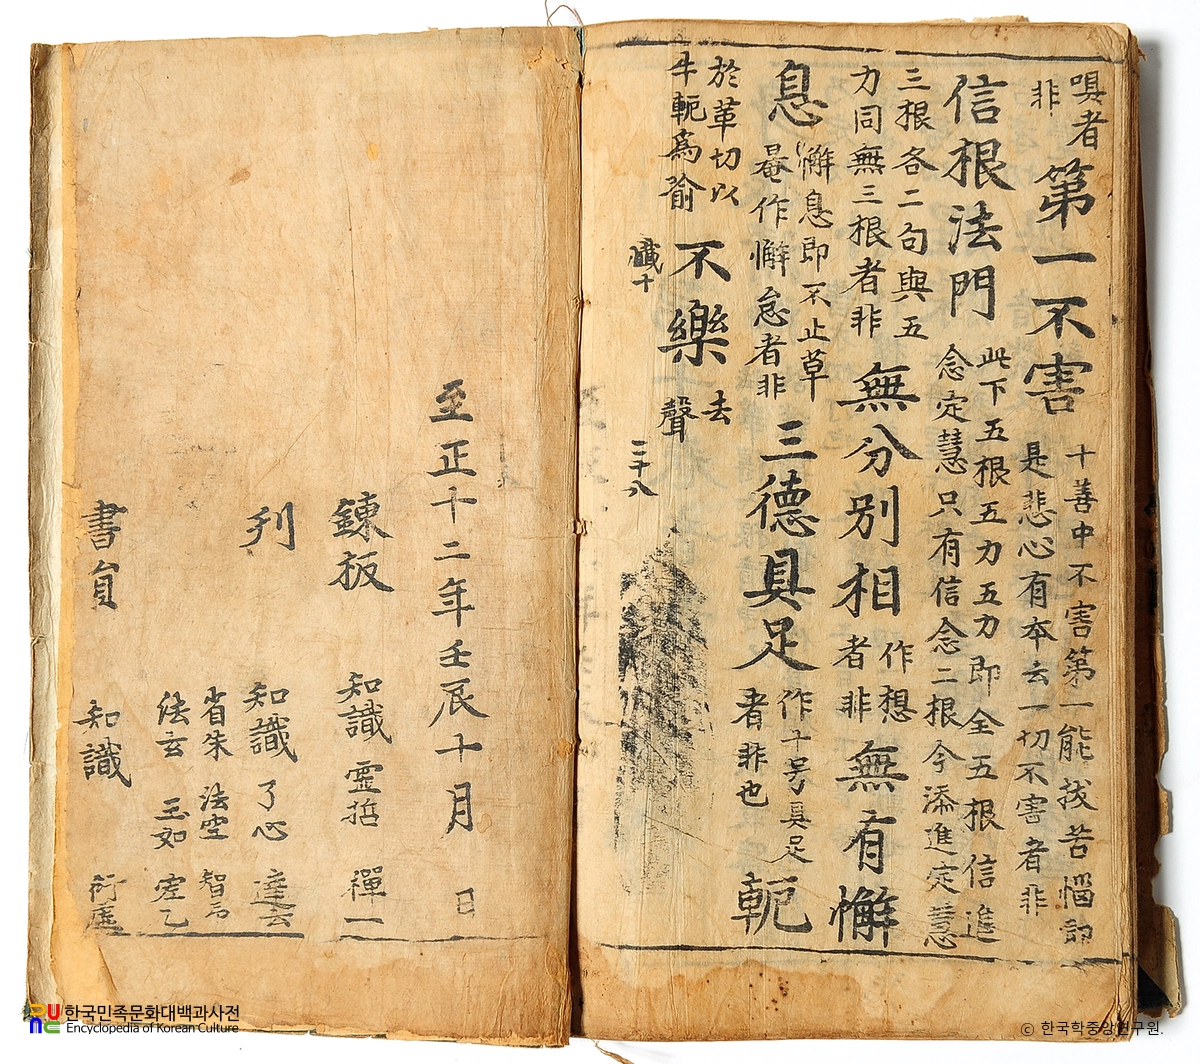 嗅者
非
第一不害
十善中不害第一能拔苦惱
是悲心有本去一切不害者非
信根法門
此下五根五力五力即全五根信進
念定慧只有信念二根今添進定慧
三根各二句與五
力同無三根者非
無分別相
作想
者非
無有懈
息
懈息即不止草
菴作懈怠者非
三德具足
作十号具足
者非也
軛
於革切以
牛軛爲喻
不樂
去
聲
懺十
二十八
至正十二年壬辰十月 日
鍊板 知識 靈哲 禪一
刋 知識 了心 達玄
省朱 法空 智
法玄 玉如 空乙
書員 知識
한국민족문화대백과사전
Encyclopedia of Korean Culture
© 한국학중앙연구원.